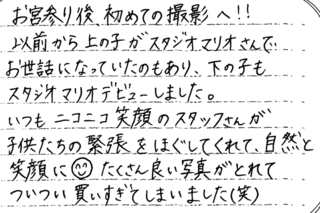 お宮参り後、初めての撮影へ!!
以前から上の子がスタジオマリオさんで、
お世話になっていたのもあり、下の子も
スタジオマリオデビューしました。
いつも ニコニコ 笑顔のスタッフさんが
子供たちの緊張をほぐしてくれて、自然と
笑顔に☺ たくさん良い写真がとれて
ついつい 買いすぎてしまいました(笑)